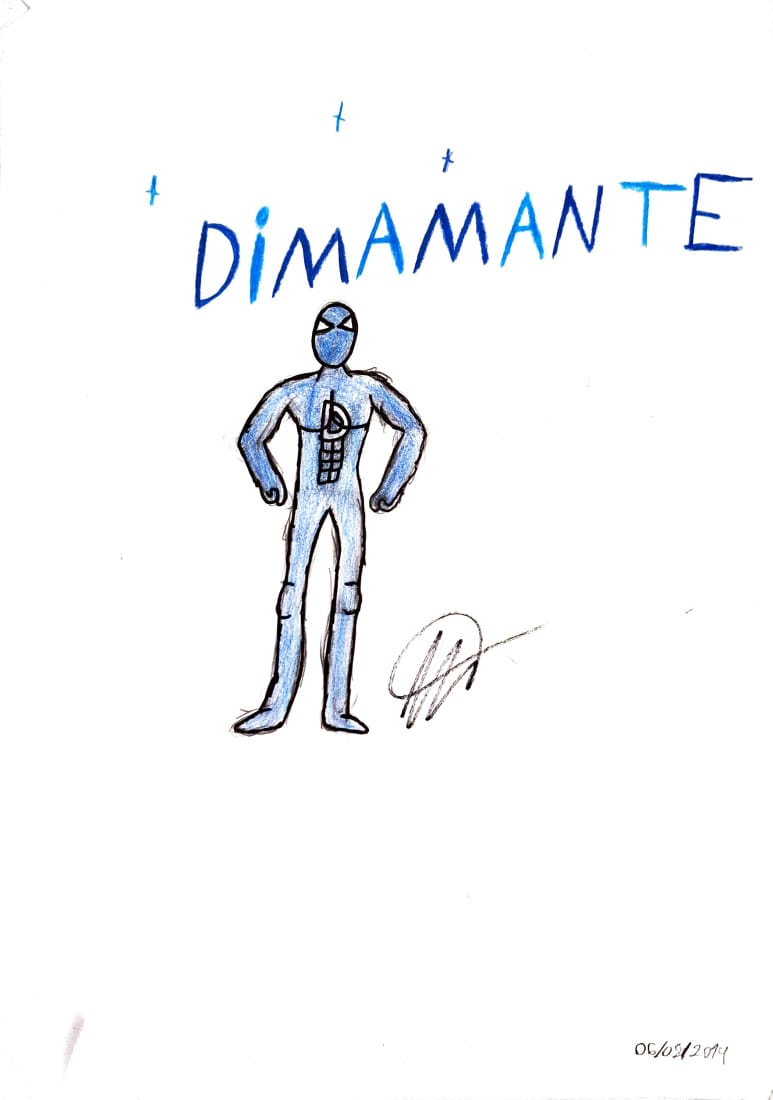 DiMAMANTE
D
06/02/2014